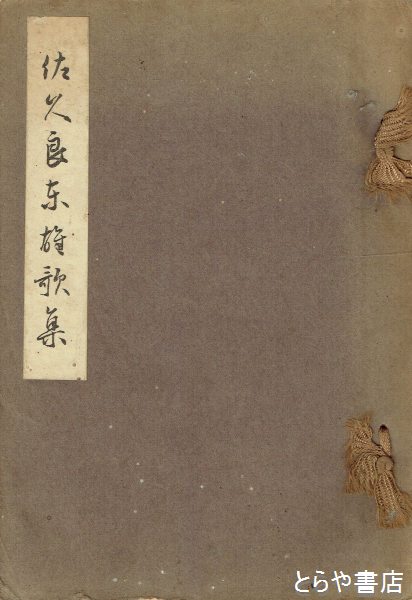 佐久良东雄歌集
とらや書店